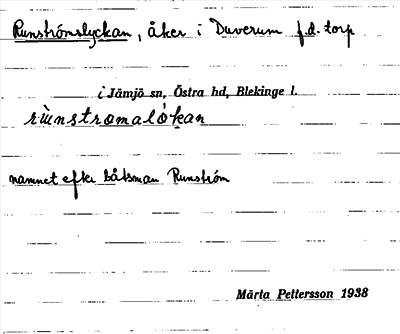 Runströmslyckan, åker i Duverum f.d. torp
i Jämjö sn, Östra hd, Blekinge l.
namnet efter båtsman Runström
Märta Pettersson 1938